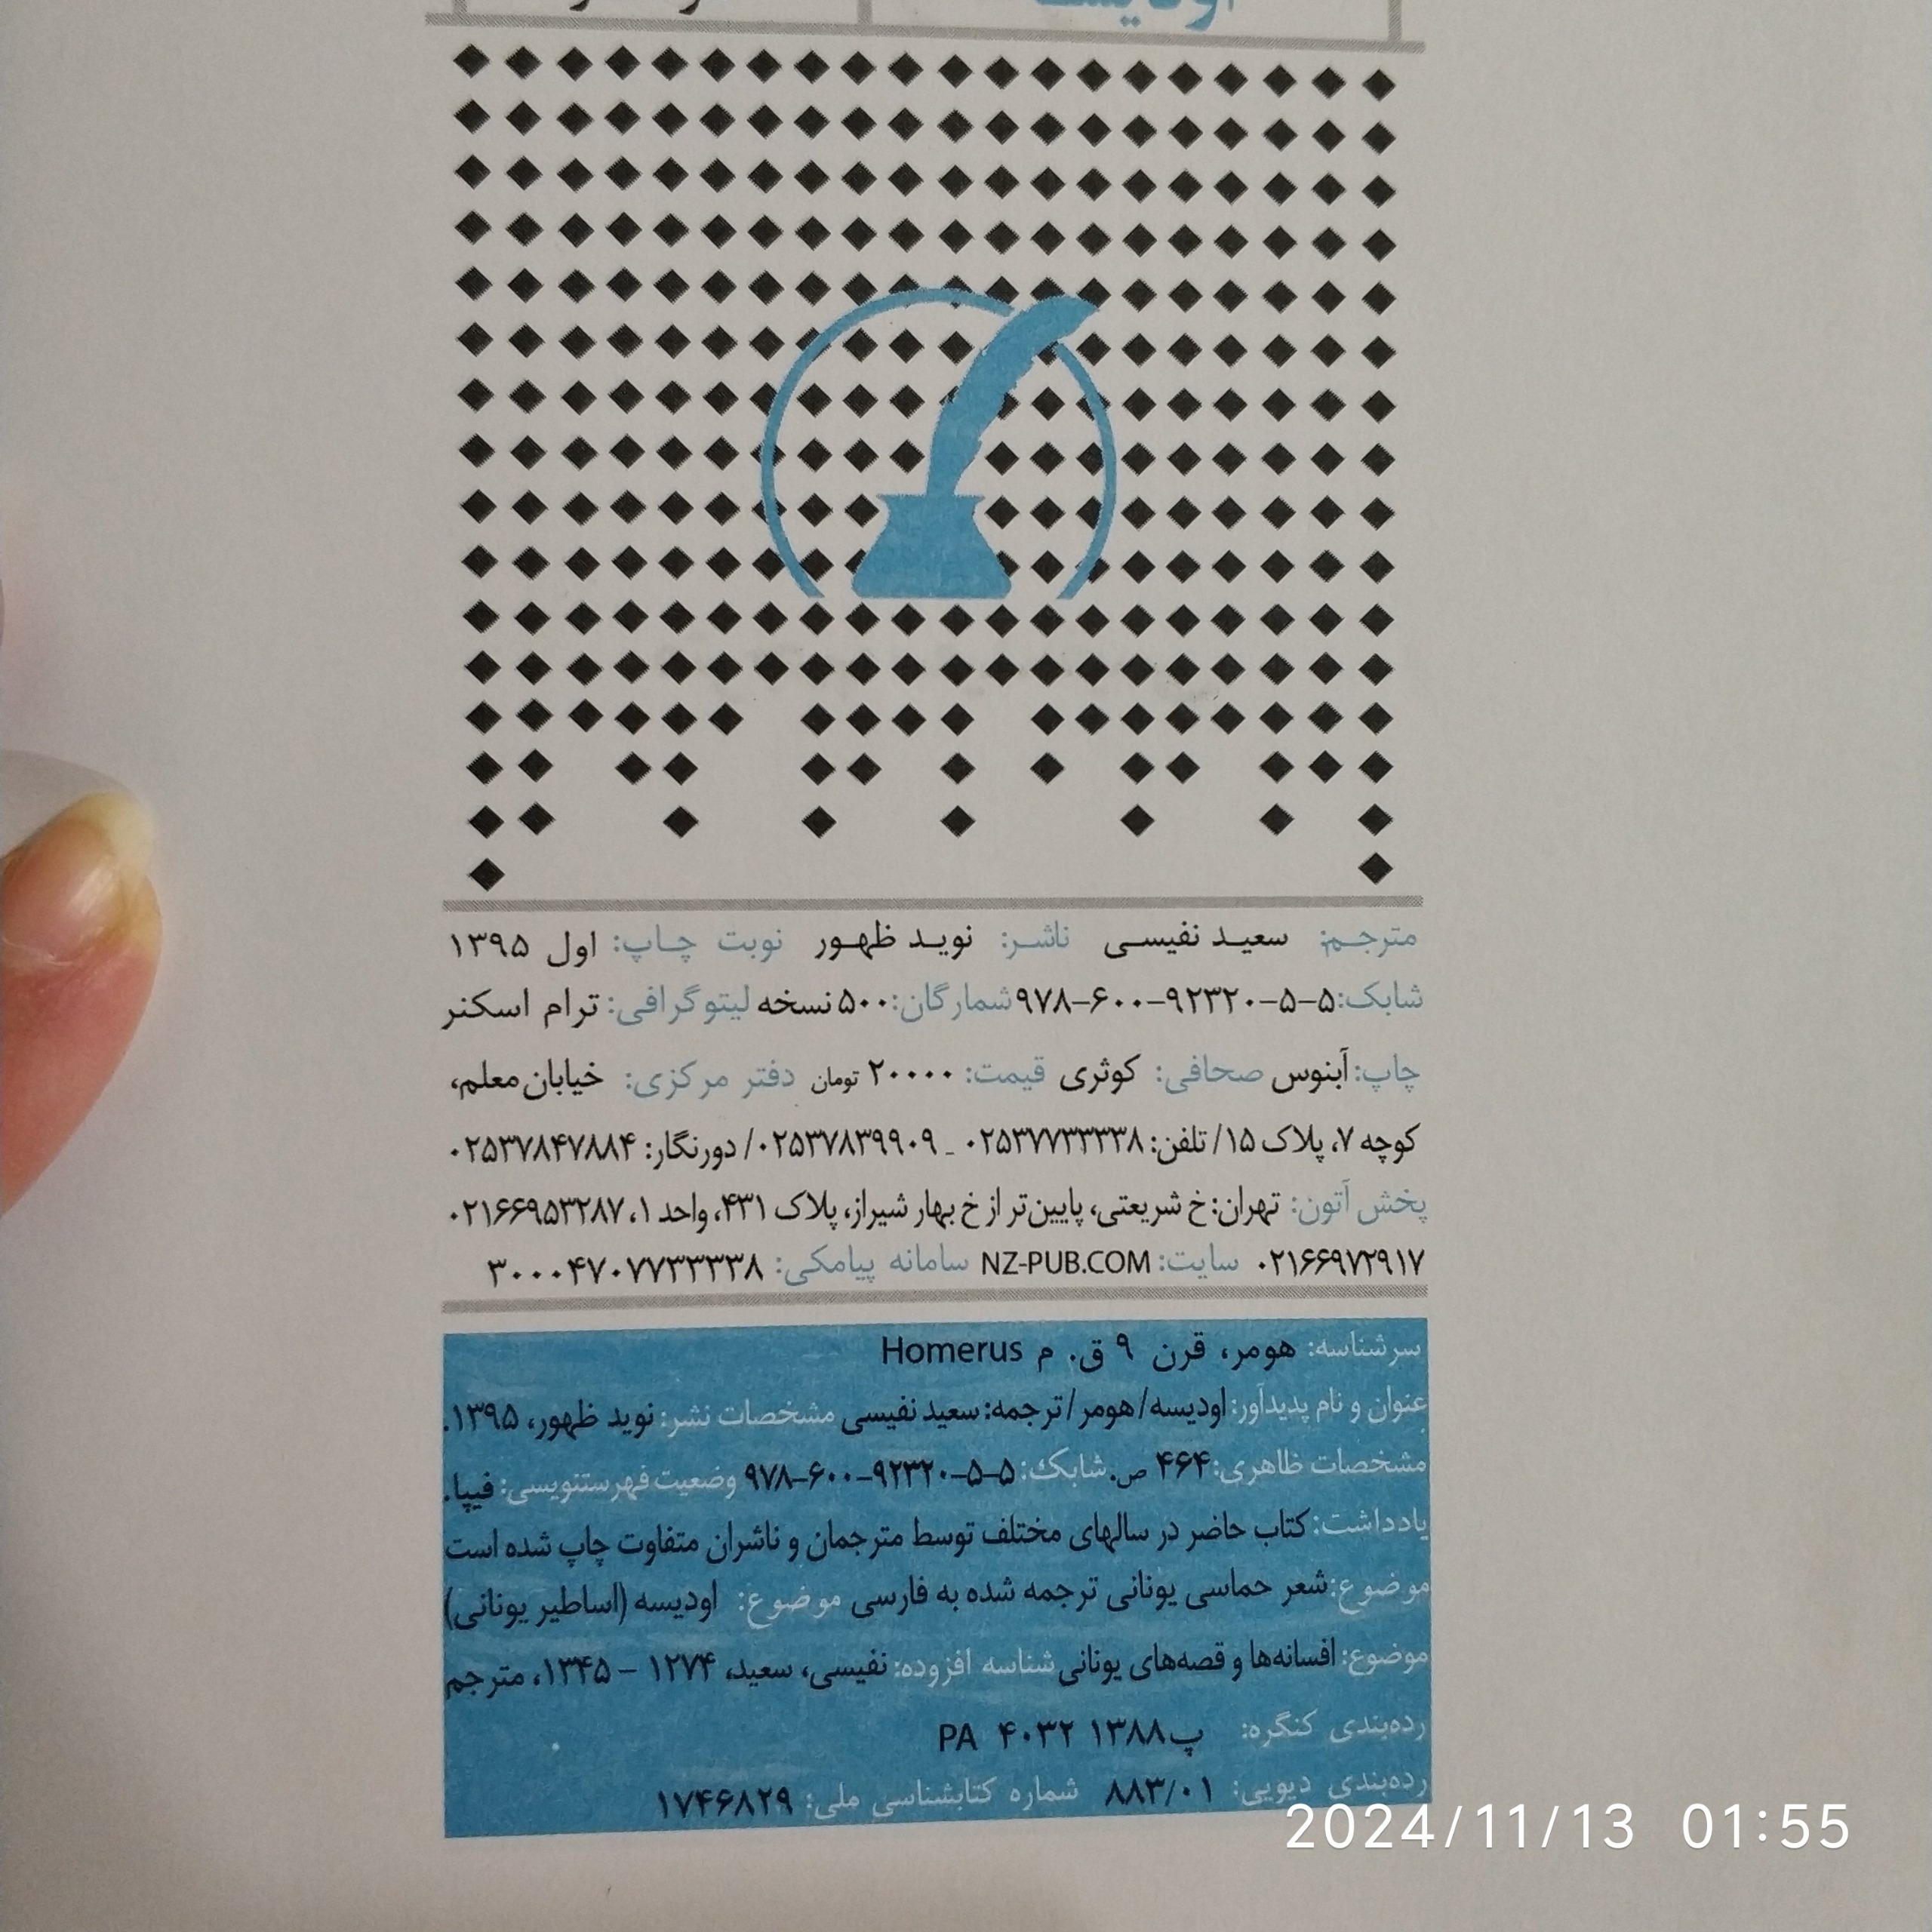 مترجم: سعید نفیسی ناشر: نوید ظهور نوبت چاپ: اول ۱۳۹۵
شابک:۵-۵-۹۲۳۲۰-۶۰۰-۹۷۸ شمارگان:۵۰۰ نسخه لیتوگرافی: ترام اسکنر
چاپ: آبنوس صحافی: کوثری قیمت: ۲۰۰۰۰ تومان دفتر مرکزی: خیابان معلم،
کوچه ۷، پلاک ۱۵/ تلفن: ۰۲۵۳۷۷۳۳۳۳۸ - ۰۲۵۳۷۸۳۹۹۰۹/ دورنگار: ۰۲۵۳۷۸۴۷۸۸۴
پخش آتون: تهران: خ شریعتی، پایین‌تر از خ بهار شیراز، پلاک ۴۳۱، واحد ۱، ۰۲۱۶۶۹۵۳۲۸۷
۰۲۱۶۶۹۷۲۹۱۷ سایت: NZ-PUB.COM سامانه پیامکی: ۳۰۰۰۴۷۰۷۷۳۳۳۳۸
سرشناسه: هومر، قرن ۹ ق. م Homerus
عنوان و نام پدیدآور: اودیسه/ هومر/ ترجمه: سعید نفیسی مشخصات نشر: نوید ظهور، ۱۳۹۵.
مشخصات ظاهری: ۴۶۴ ص. شابک: ۵-۵-۹۲۳۲۰-۶۰۰-۹۷۸ وضعیت فهرستنویسی: فیپا.
یادداشت: کتاب حاضر در سالهای مختلف توسط مترجمان و ناشران متفاوت چاپ شده است
موضوع: شعر حماسی یونانی ترجمه شده به فارسی موضوع: اودیسه (اساطیر یونانی)
موضوع: افسانه‌ها و قصه‌های یونانی شناسه افزوده: نفیسی، سعید، ۱۲۷۴ - ۱۳۴۵، مترجم
رده‌بندی کنگره: پ۱۳۸۸ ۴۰۳۲ PA
رده‌بندی دیویی: ۸۸۳/۰۱ شماره کتابشناسی ملی: ۱۷۴۶۸۲۹
2024/11/13 01:55